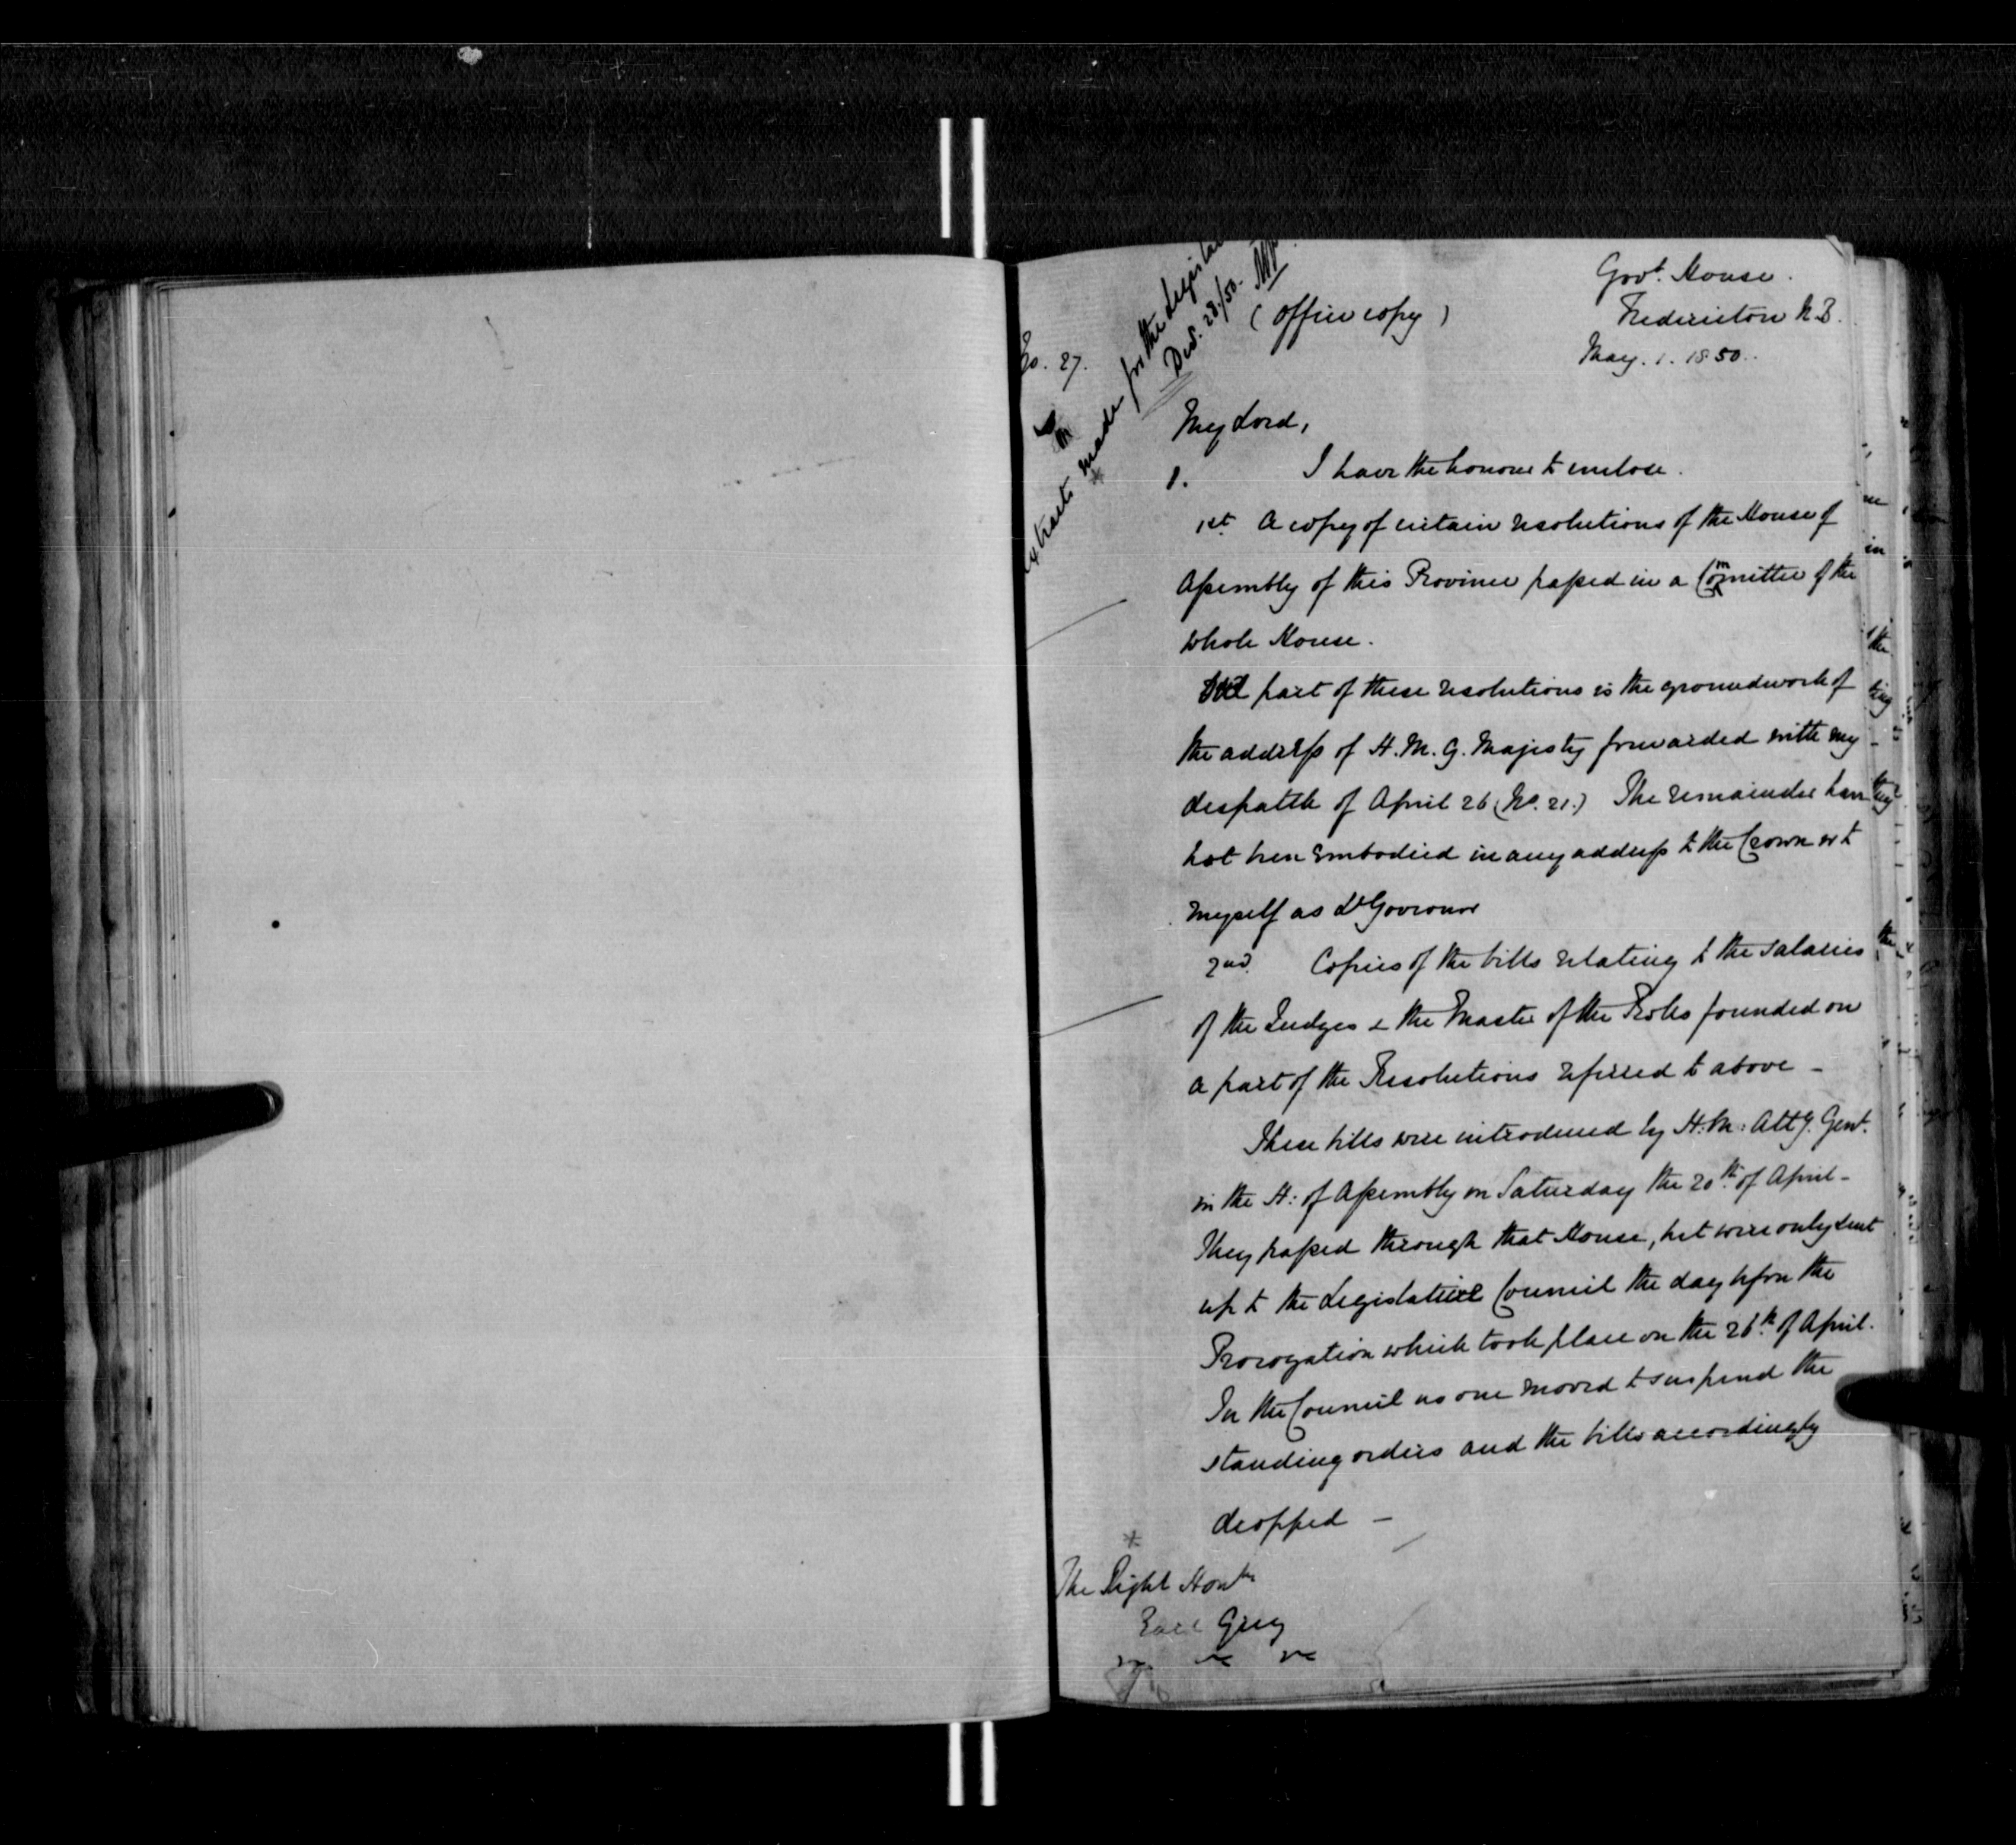 Govt. House.
Fredericton N.B.
May. 1. 1850.
(Office copy)
No. 27.
Extracts made for the Legislat
Decr. 28./50.
My Lord,
1. I have the honour to enclose.
1st. A copy of certain resolutions of the House of
Assembly of this Province passed in a Committee of the
whole House.
part of these resolutions is the groundwork of
the address of H. M. G. Majesty forwarded with my
despatch of April 26 (No. 21.) The remainder have
not been embodied in any address to the Crown or to
myself as Lt Governor
2nd. Copies of the bills relating to the salaries
of the Judges & the Master of the Rolls founded on
a part of the Resolutions referred to above –
These bills were introduced by H.M: Atty. Genl.
in the H: of Assembly on Saturday the 20th. of April –
They passed through that House, but were only sent
up to the Legislative Council the day before the
Prorogation which took place on the 26th. of April.
In the Council no one moved to suspend the
standing orders and the bills accordingly
dropped –
The Right Honble
Earl Grey